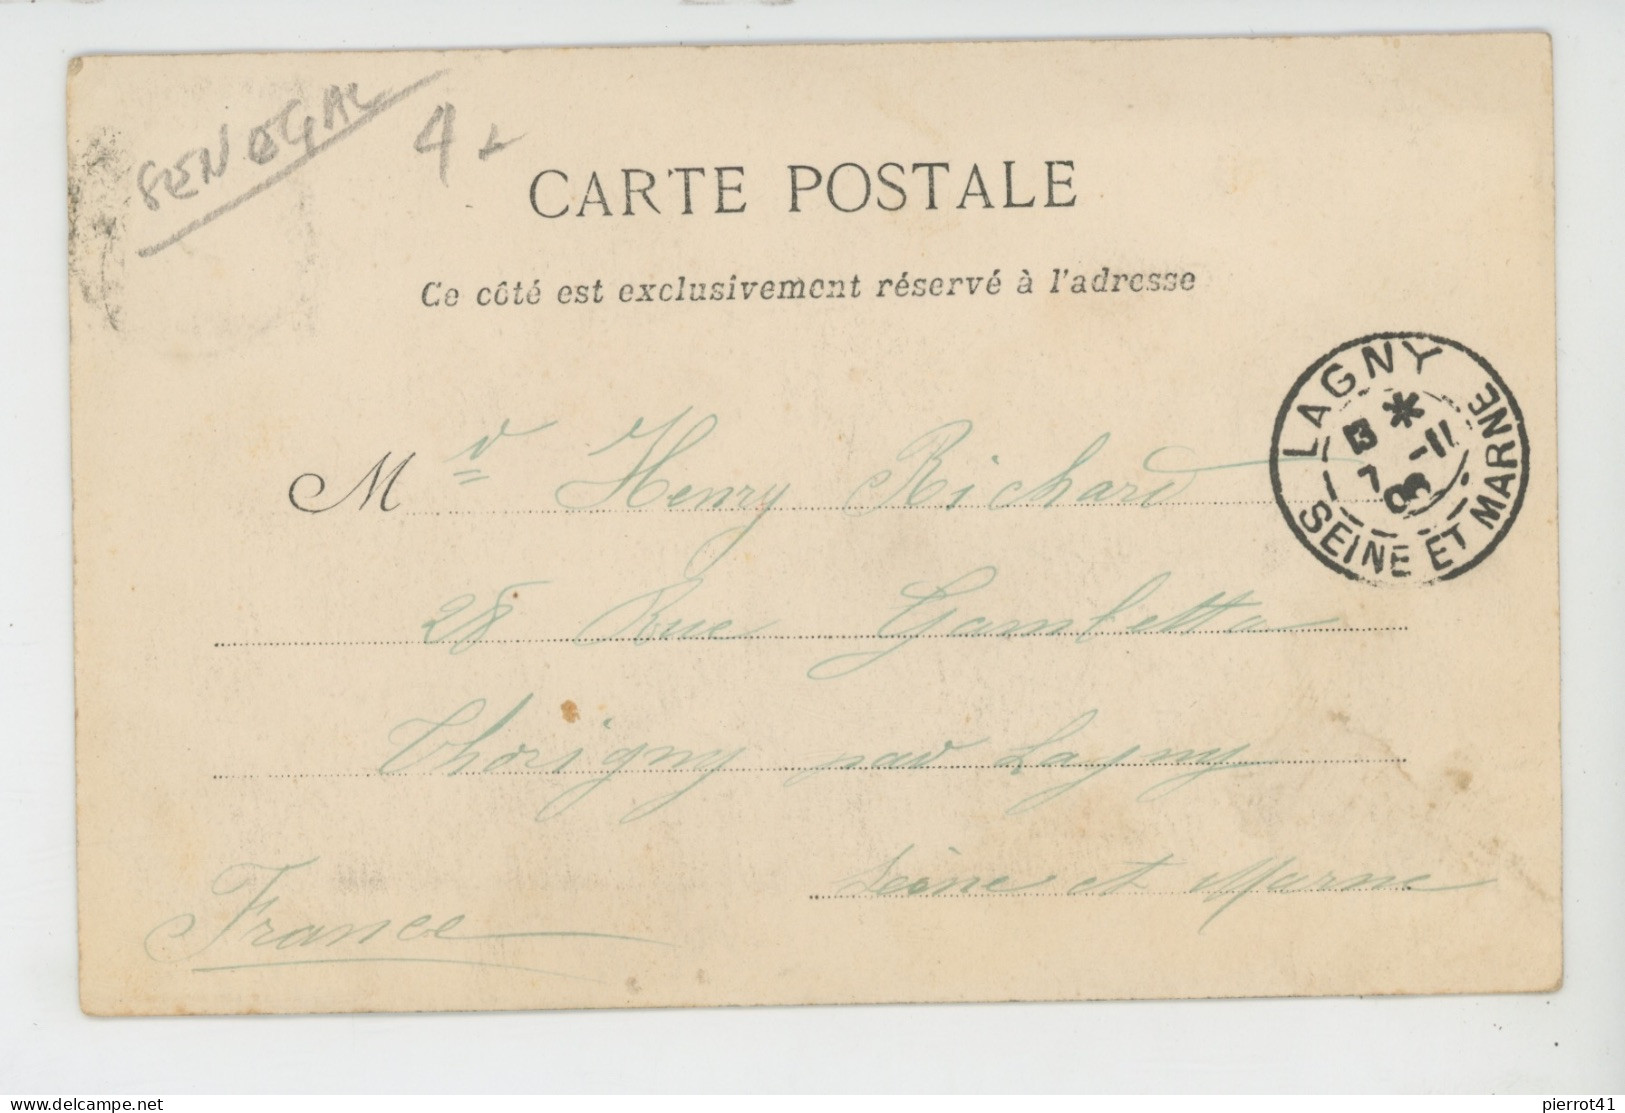 SENEGAL
4
CARTE POSTALE
Ce côté est exclusivement réservé à l'adresse
LAGNY
SEINE ET MARNE
Mr Henry Richard
28 Rue Gambetta
Thorigny par Lagny
Seine et Marne
France
delcampe.net
pierrot41